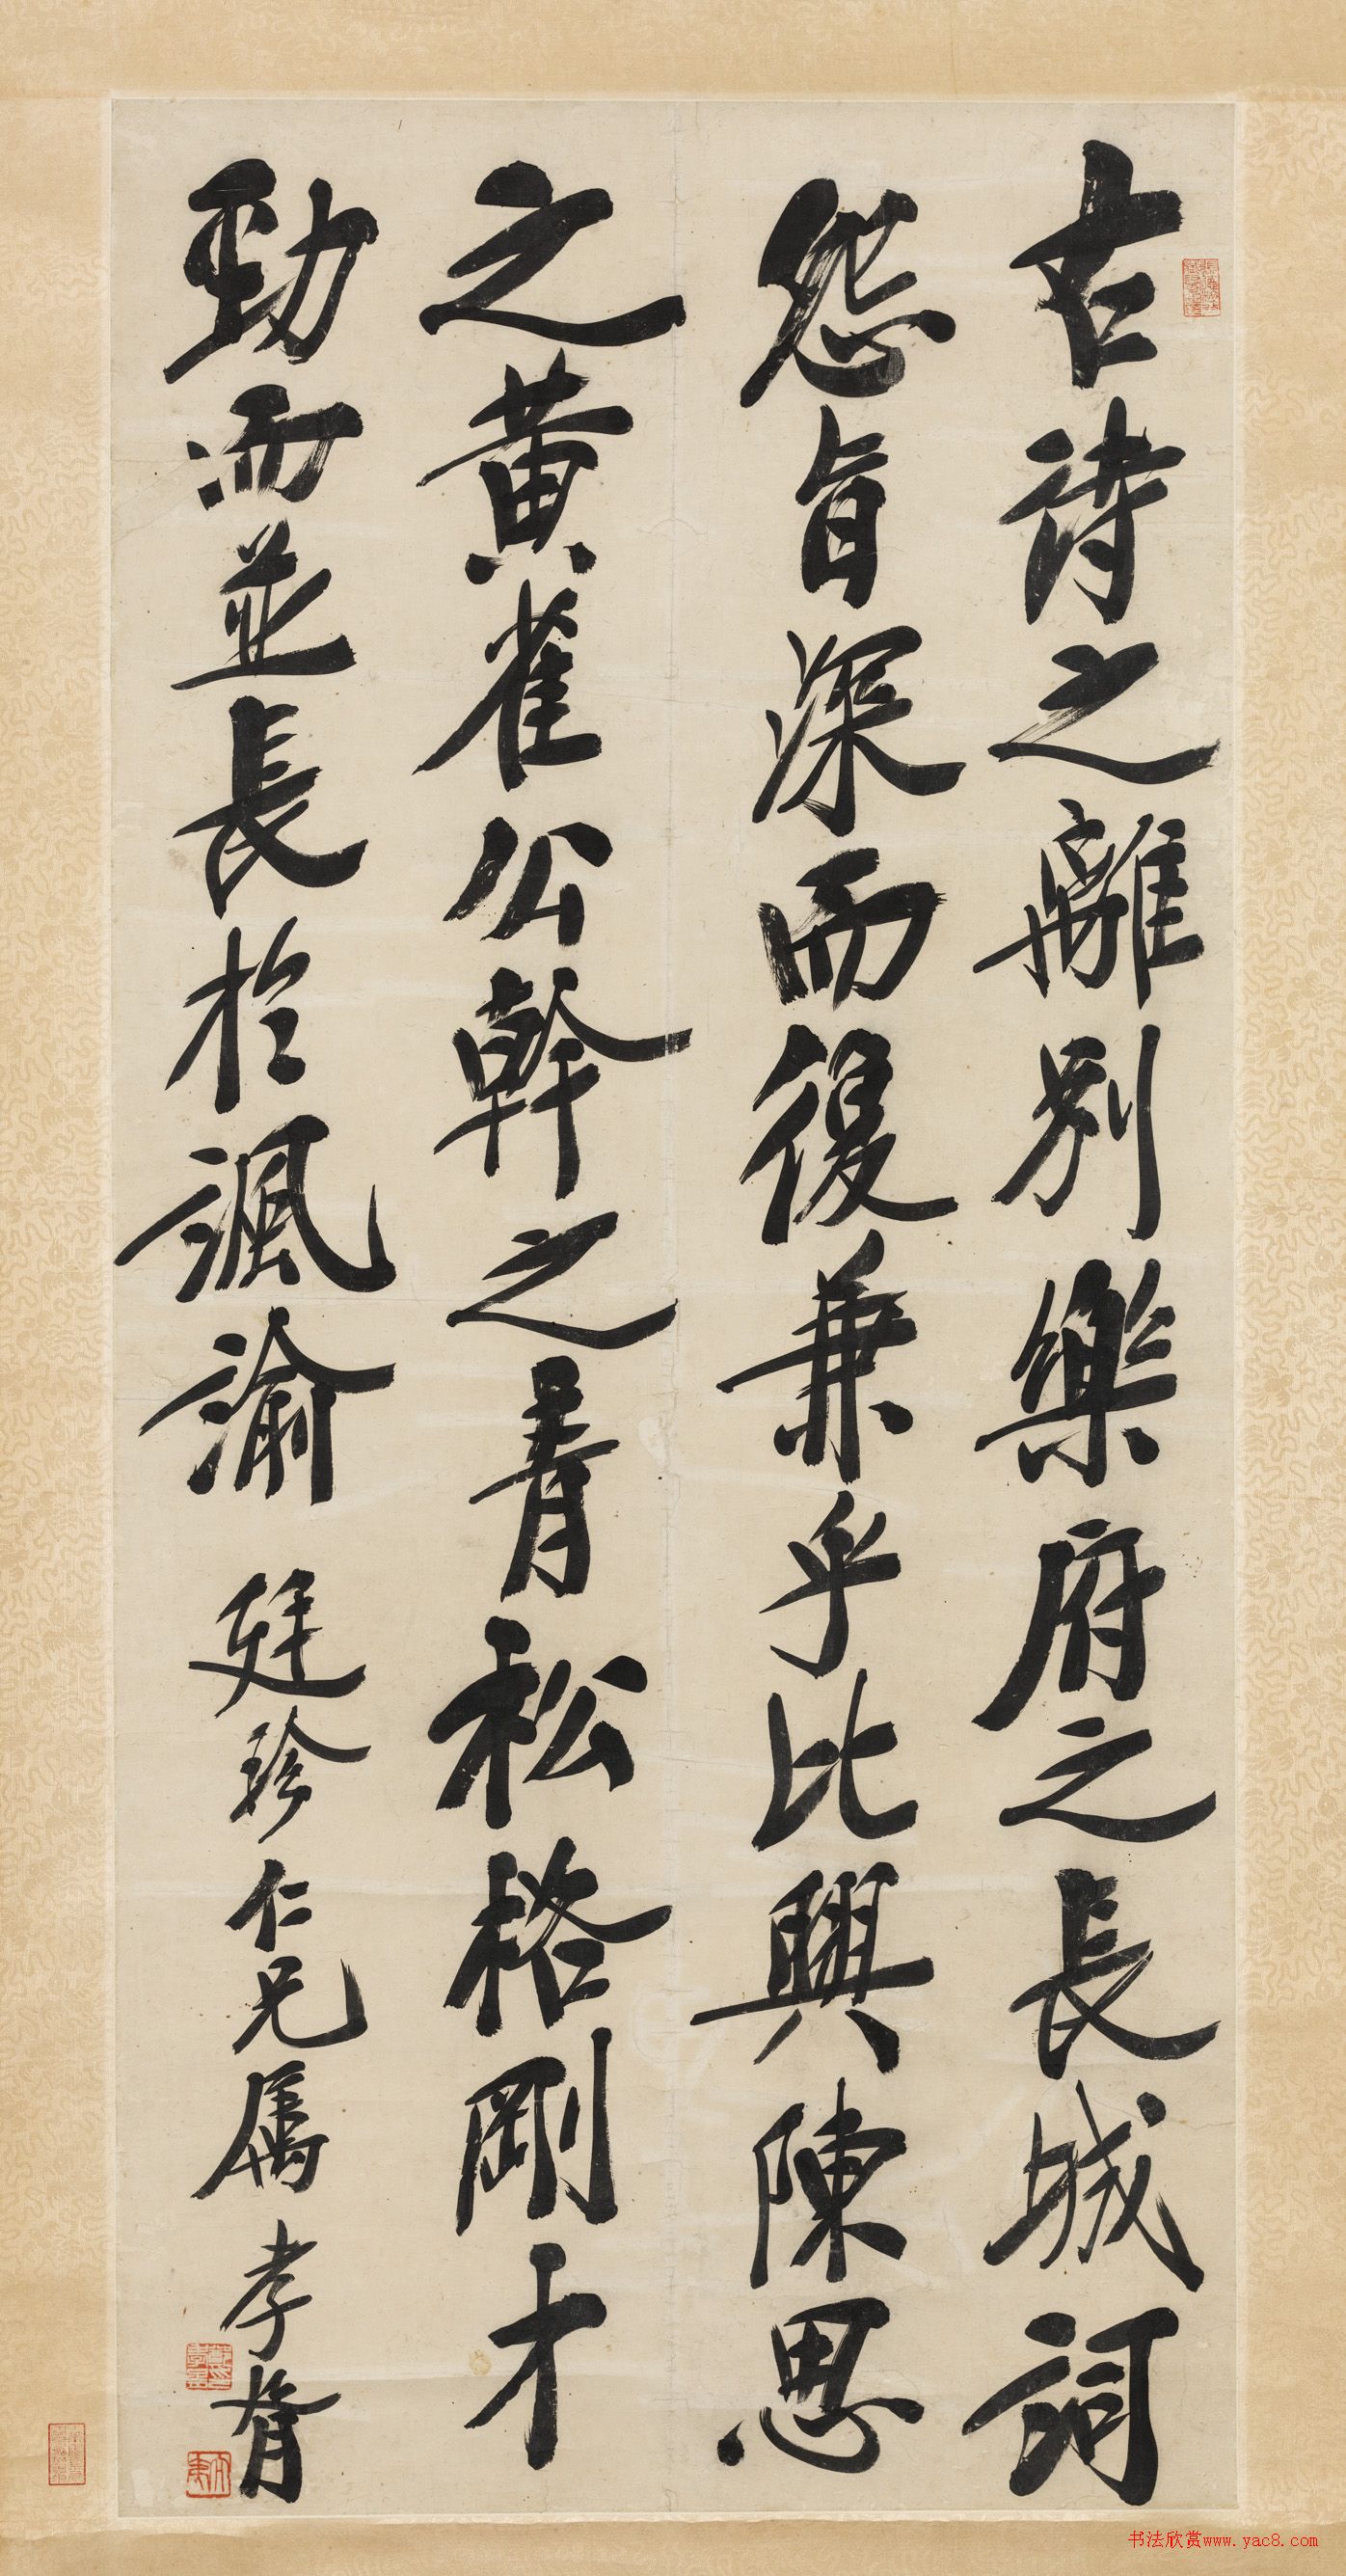 古詩之離別樂府之長城詞
怨旨深而復兼乎比興陳思
之黃雀公幹之青松格剛才
勁而並長於諷諭
廷珍仁兄属
孝胥
书法欣赏www.yac8.com